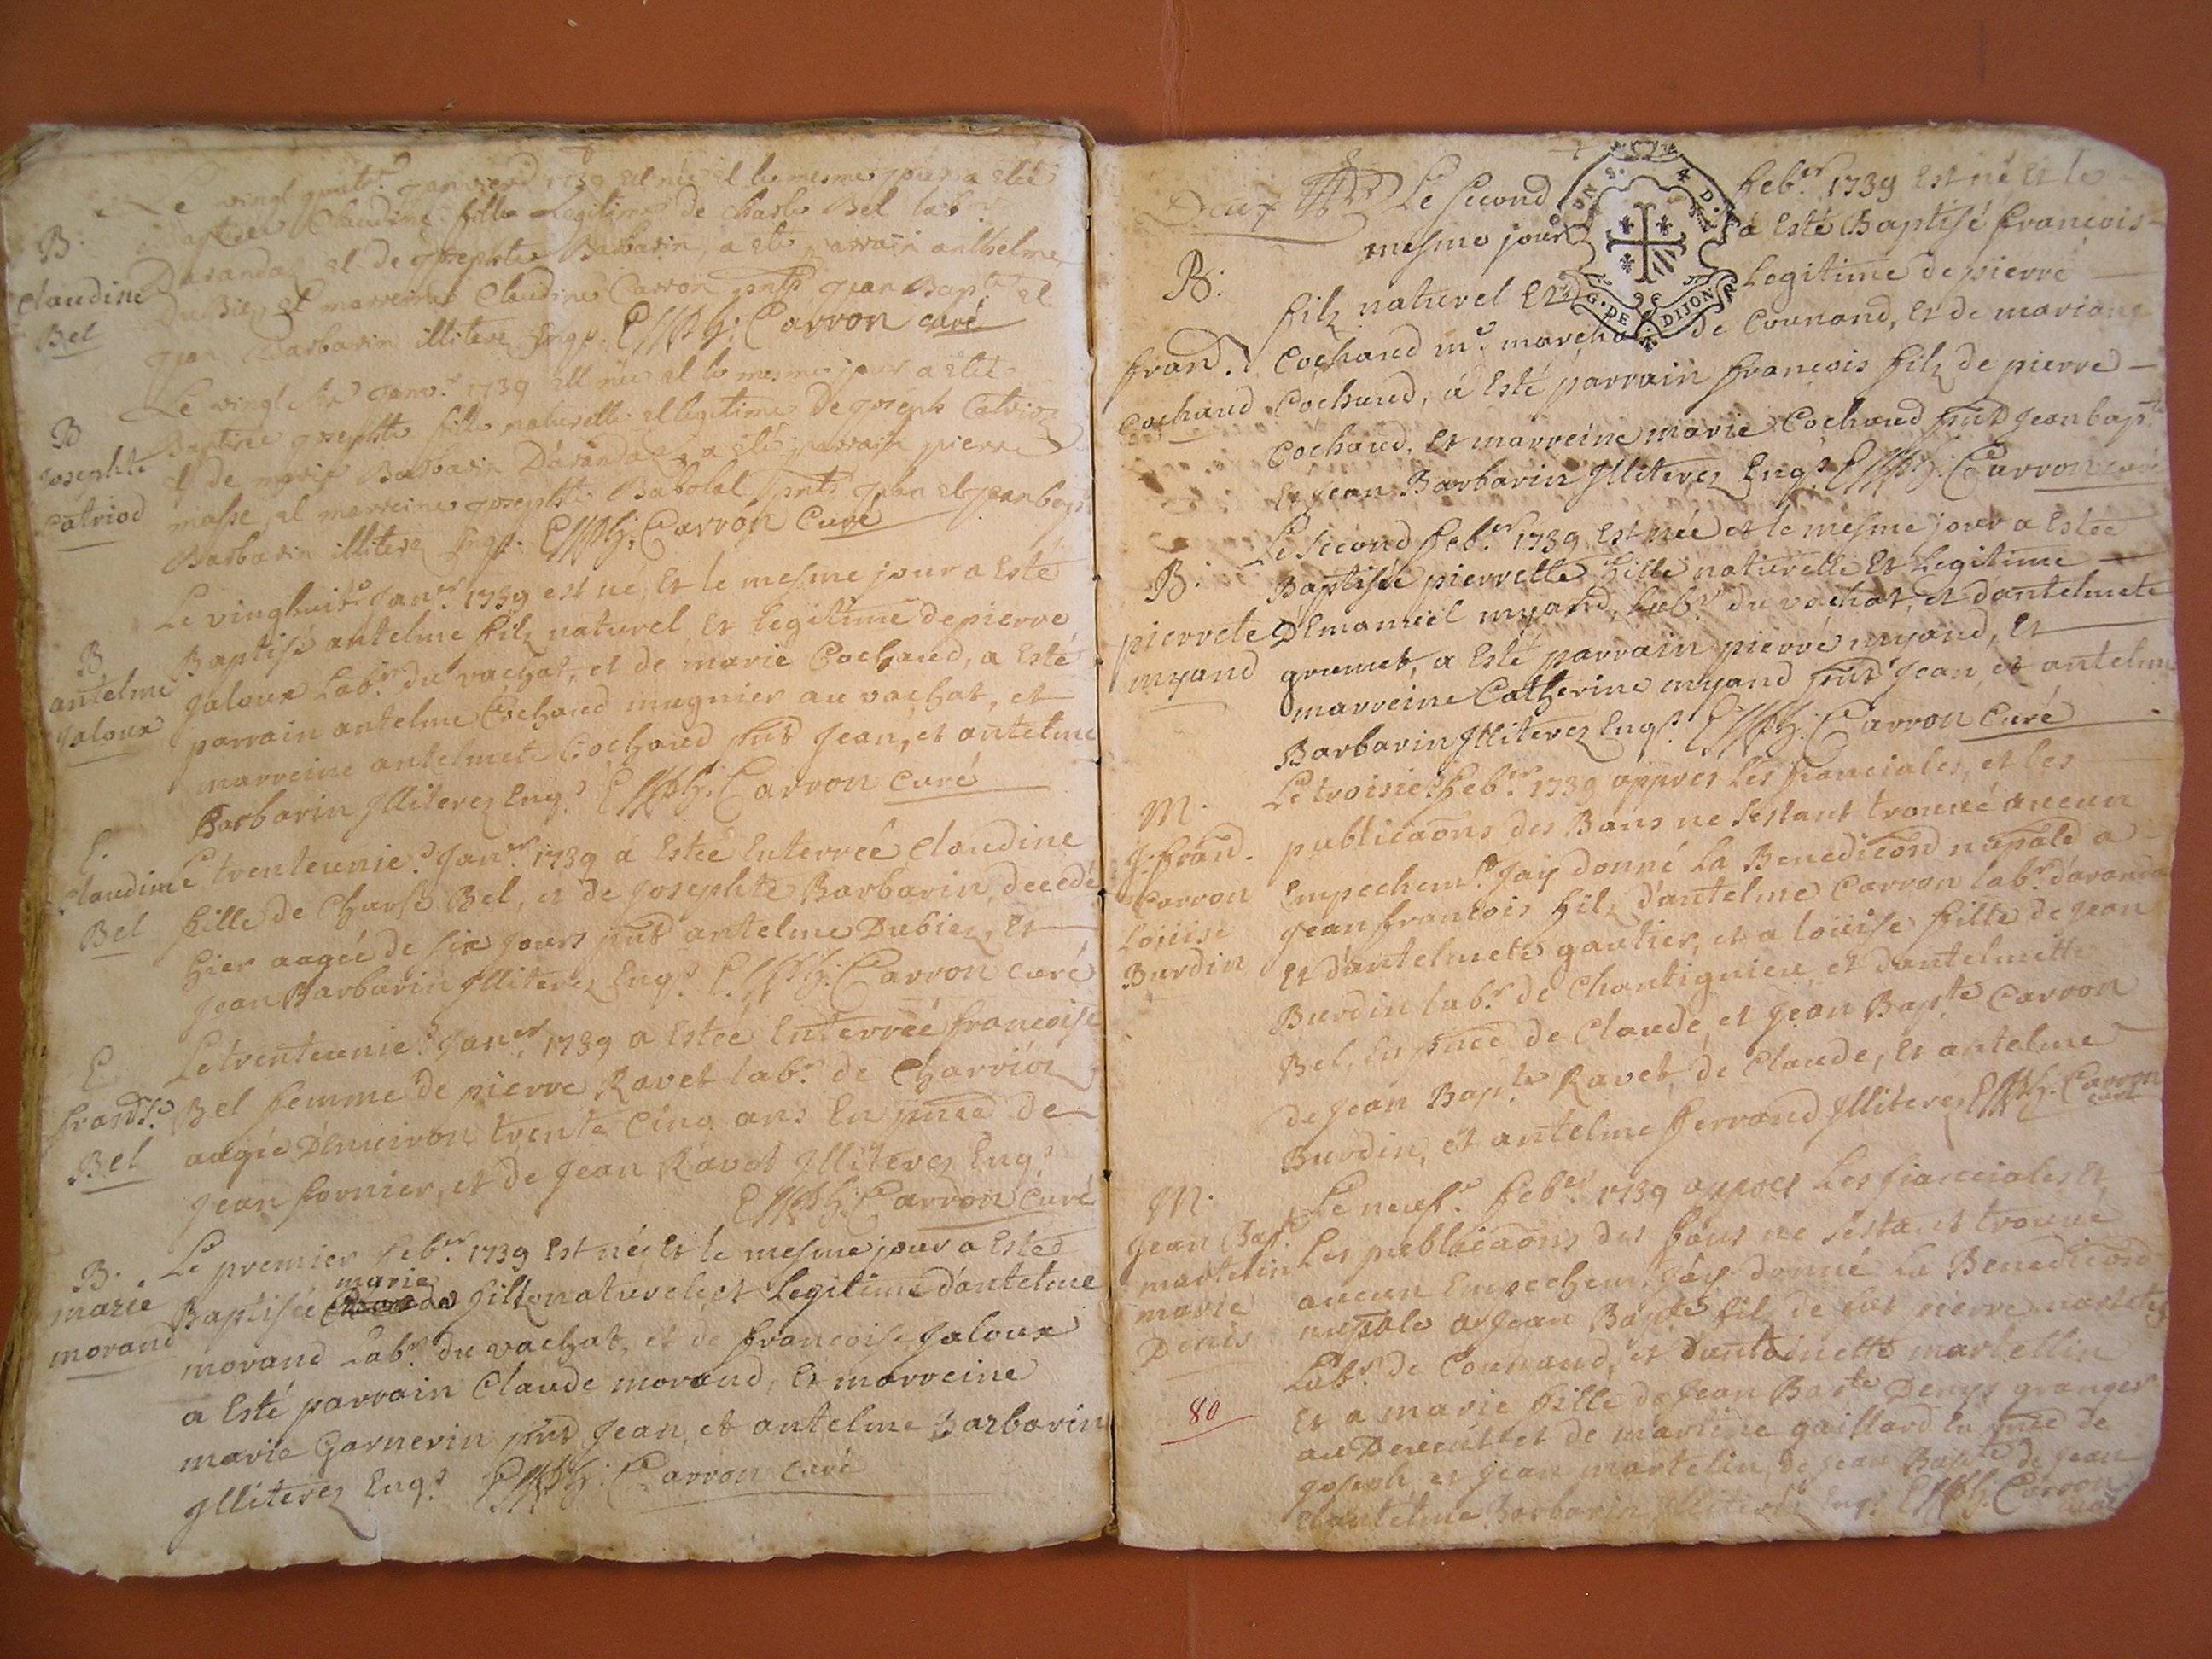 Le vingt quatr.e Janvier 1739 est née et le mesme jour a esté
B. baptisée Claudine fille Legitime de charle Bel lab.r
Darandaz et de Josephte Barbarin, a esté parrain anthelme
Claudine Du Biez et marreine Claudine Carron pnts Jean Bap.te et
Bel Jean Barbarin illiterez Enqs. Carron curé
Le vingt Janv.r 1739 est née et le mesme jour a esté
B Baptisée josephte fille naturelle et legitime De joseph Catrioz
Josephte et de marie Barbarin Darandaz, a esté parrain pierre
Catriod masse et marreine josephte Babolat pnts jean et jean bapt
Barbarin illiterez Enqs. Carron Curé
Le vinghuit.e Jan.er 1739 est né, Et le mesme jour a Esté
B Baptisé antelme filz naturel Et legitime de pierre
antelme Jaloux Lab.r du vachat, et de marie Cochand, a Esté
Jaloux parrain antelme Cochand mugnier au vachat, et
marreine antelmete Cochand pnts Jean, et antelme
Barbarin Jlliterez Enq.s Carron curé
E. Le trenteunie.e Jan.er 1739 a Estée Enterrée Claudine
Claudine fille de Charle Bel, et de Josephte Barbarin, decedé
Bel hier aagée de six jours pnts antelme Dubiez, Et
Jean Barbarin Jlliterez Enq.s Carron curé
E Le trenteunie.e Jan.er 1739 a Estée Enterrée francoise
fran.se Bel femme de pierre Ravet lab.r de Charvioz
Bel aagée D'Enuiron trente Cinq ans En pnce de
Jean fornier, et de Jean Ravet Jlliterez Enq.s
Carron curé
B. Le premier feb.er 1739 Est née Et le mesme jour a Estée
marie
marie Baptisée fille naturele et Legitime d'antelme
morand morand Lab.r du vachat, et de francoise Jaloux
a Esté parrain Claude morand, Et marreine
marie Garnerin pnts Jean, et antelme Barbarin
Jlliterez Enq.s Carron curé
Deux Le second feb.er 1739 Est né Et le
mesme jour a Esté Baptisé francois
B. filz naturel Et Legitime de pierre
G. DE DIJON
fran.s Cochand m.e marchand de Counand, Et de mariane
Cochand Cochand, a Esté parrain francois filz de pierre
Cochand, Et marreine marie Cochand pnts Jean bap.te
Et Jean Barbarin Jlliterez Enq.s Carron curé
Le second feb.er 1739 Est née et le mesme jour a Estée
B. Baptisée pierrette fille naturelle Et Legitime
pierrete D'Emanuël myand, Lab.r du vachat, et d'antelmete
myand grumet, a Esté parrain pierre myand, Et
marreine Catherine myand pnts Jean, et antelme
Barbarin Jlliterez Enq.s Carron Curé
M. Le troisie.e feb.er 1739 appres Les fianciales, et les
J. fran. publicaõns des Bans ne s'estant trouué aucun
Carron Empechem.t J'ay donné La Benediçõn nupale a
Louise Jean francois filz d'antelme Carron lab.r d'aranda
Burdin Et d'antelmete gautier, et a loüise fille de Jean
Burdin lab.r de Chantignieu, et d'antelmette
Bel, En pnce de Claude, et Jean Bap.te Carron
de Jean Bap.te Ravet, de Claude, Et antelme
Burdin, et antelme ferrand Jlliterez Carron
curé
M. Le neuf.e feb.er 1739 appres Les fianciales Et
Jean Bap.te Les publicaõns des Bans ne s'estant trouué
martelin aucun Empechem.t J'ay donné La Benediçõn
marie nupale a Jean Bap.te filz de feu pierre martelin
Denis Lab.r de Counand, et D'antoinette martellin
80 Et a marie fille de Jean Bap.te Denys granger
au et de marine gaillard En pnce de
joseph, et Jean martelin, de Jean Bap.te de Jean
et antelme Barbarin Jlliterez Enq.s Carron
curé